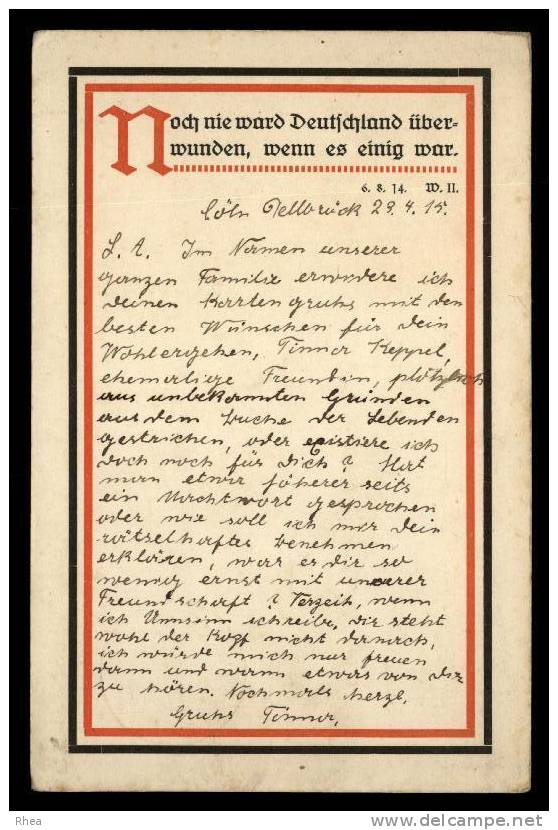 Noch nie ward Deutschland über-
wunden, wenn es einig war.
6. 8. 14. W. II.
Cöln Dellbrück 29. 4. 15.
L. A. Im Namen unserer
ganzen Familie erwidere ich
deinen Kartengruhs mit den
besten Wünschen für dein
Wohlergehen, Tinna Keppel,
ehemalige Freundin, plötzlich
aus unbekannten Gründen
aus dem Buche der Lebenden
gestrichen, oder existiere ich
doch noch für Dich? Hat
man etwa höherer seits
ein Machtwort gesprochen
oder wie soll ich mir dein
rätselhaftes Benehmen
erklären, war es dir so
wenig ernst mit unserer
Freundschaft? Verzeih, wenn
ich Unnsinn schreibe, dir steht
wohl der Kopf nicht danach,
ich würde mich nur freuen
dann und wann etwas von Dir
zu hören. Nochmals herzl.
Gruhs Tinna,
Rhea
delcampe.net